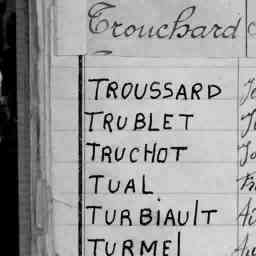 Trouchard
TROUSSARD
TRUBLET
TRUCHOT
TUAL
TURBIAULT
TURMEL